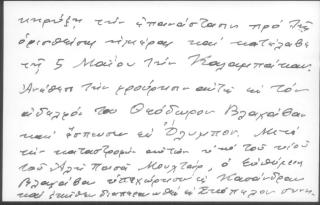 κηρύξῃ τὴν ἐπανάστασιν πρὸ τῆς
ὁρισθείσης ἡμέρας καὶ κατέλαβε
τῇ 5 Μαΐου τὴν Καλαμπάκαν.
Ἀνέθεσε τὴν φρούρησιν αὐτῆς εἰς τὸν
ἀδελφόν του Θεόδωρον Βλαχάβαν
καὶ ἔσπευσεν εἰς Ὄλυμπον. Μετὰ
τὴν καταστροφὴν αὐτῶν ὑπὸ τοῦ υἱοῦ
τοῦ Ἀλῆ Πασᾶ Μουχτάρ, ὁ Εὐθύμιος
Βλαχάβας ὑπεχώρησεν εἰς Κασάνδραν
καὶ ἐκεῖθεν διεπεραιώθη εἰς Σκόπελον